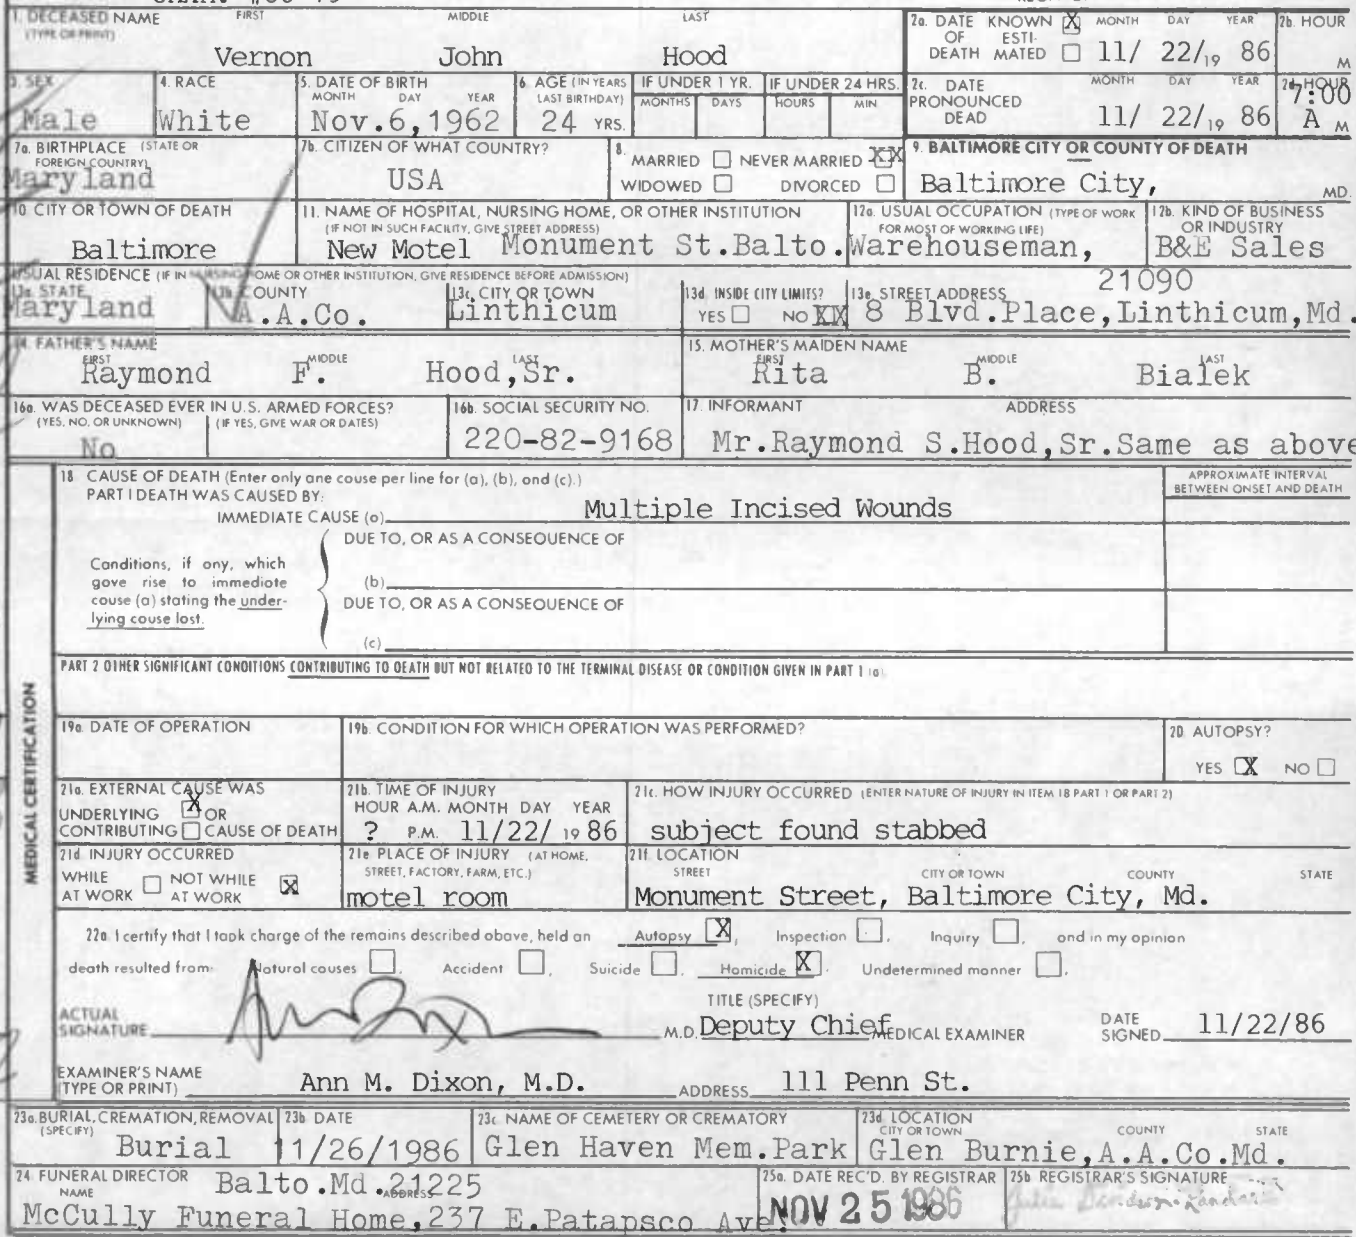 1. DECEASED NAME FIRST MIDDLE LAST
(TYPE OR PRINT)
Vernon John Hood
2a. DATE KNOWN X MONTH DAY YEAR 2b. HOUR
OF ESTI-
DEATH MATED 11/ 22/19 86 M
3. SEX 4. RACE 5. DATE OF BIRTH 6. AGE (IN YEARS IF UNDER 1 YR. IF UNDER 24 HRS.
MONTH DAY YEAR LAST BIRTHDAY) MONTHS DAYS HOURS MIN
Male White Nov.6,1962 24 YRS.
2c. DATE MONTH DAY YEAR 2d. HOUR
PRONOUNCED 7:00
DEAD 11/ 22/19 86 A M
7a. BIRTHPLACE (STATE OR
FOREIGN COUNTRY)
Maryland
7b. CITIZEN OF WHAT COUNTRY?
USA
8. MARRIED NEVER MARRIED XX
WIDOWED DIVORCED
9. BALTIMORE CITY OR COUNTY OF DEATH
Baltimore City, MD.
10. CITY OR TOWN OF DEATH
Baltimore
11. NAME OF HOSPITAL, NURSING HOME, OR OTHER INSTITUTION
(IF NOT IN SUCH FACILITY, GIVE STREET ADDRESS)
New Motel Monument St.Balto.
12a. USUAL OCCUPATION (TYPE OF WORK
FOR MOST OF WORKING LIFE)
Warehouseman,
12b. KIND OF BUSINESS
OR INDUSTRY
B&E Sales
USUAL RESIDENCE (IF IN NURSING HOME OR OTHER INSTITUTION, GIVE RESIDENCE BEFORE ADMISSION)
13a. STATE
Maryland
13b. COUNTY
A.A.Co.
13c. CITY OR TOWN
Linthicum
13d. INSIDE CITY LIMITS?
YES NO XX
13e. STREET ADDRESS 21090
8 Blvd.Place,Linthicum,Md.
14. FATHER'S NAME
FIRST MIDDLE LAST
Raymond F. Hood,Sr.
15. MOTHER'S MAIDEN NAME
FIRST MIDDLE LAST
Rita B. Bialek
16a. WAS DECEASED EVER IN U.S. ARMED FORCES?
(YES, NO, OR UNKNOWN) (IF YES, GIVE WAR OR DATES)
No
16b. SOCIAL SECURITY NO.
220-82-9168
17. INFORMANT ADDRESS
Mr.Raymond S.Hood,Sr.Same as above
MEDICAL CERTIFICATION
18 CAUSE OF DEATH (Enter only one cause per line for (a), (b), and (c).)
PART I DEATH WAS CAUSED BY:
IMMEDIATE CAUSE (a) Multiple Incised Wounds
APPROXIMATE INTERVAL
BETWEEN ONSET AND DEATH
DUE TO, OR AS A CONSEQUENCE OF
Conditions, if any, which
gave rise to immediate
cause (a) stating the under-
lying cause last.
(b)
DUE TO, OR AS A CONSEQUENCE OF
(c)
PART 2 OTHER SIGNIFICANT CONDITIONS CONTRIBUTING TO DEATH BUT NOT RELATED TO THE TERMINAL DISEASE OR CONDITION GIVEN IN PART 1 (a)
19a. DATE OF OPERATION
19b. CONDITION FOR WHICH OPERATION WAS PERFORMED?
20. AUTOPSY?
YES X NO
21a. EXTERNAL CAUSE WAS
UNDERLYING X OR
CONTRIBUTING CAUSE OF DEATH
21b. TIME OF INJURY
HOUR A.M. MONTH DAY YEAR
? P.M. 11/22/ 19 86
21c. HOW INJURY OCCURRED (ENTER NATURE OF INJURY IN ITEM 18 PART 1 OR PART 2)
subject found stabbed
21d. INJURY OCCURRED
WHILE NOT WHILE X
AT WORK AT WORK
21e. PLACE OF INJURY (AT HOME,
STREET, FACTORY, FARM, ETC.)
motel room
21f. LOCATION
STREET CITY OR TOWN COUNTY STATE
Monument Street, Baltimore City, Md.
22a. I certify that I took charge of the remains described above, held an Autopsy X, Inspection , Inquiry , and in my opinion
death resulted from: Natural causes , Accident , Suicide , Homicide X. Undetermined manner .
TITLE (SPECIFY)
ACTUAL
SIGNATURE M.D. Deputy Chief MEDICAL EXAMINER
DATE
SIGNED 11/22/86
EXAMINER'S NAME
(TYPE OR PRINT) Ann M. Dixon, M.D. ADDRESS 111 Penn St.
23a. BURIAL, CREMATION, REMOVAL
(SPECIFY)
Burial
23b. DATE
11/26/1986
23c. NAME OF CEMETERY OR CREMATORY
Glen Haven Mem.Park
23d. LOCATION
CITY OR TOWN COUNTY STATE
Glen Burnie,A.A.Co.Md.
24. FUNERAL DIRECTOR Balto.Md.21225
NAME ADDRESS
McCully Funeral Home,237 E.Patapsco Ave.
25a. DATE REC'D. BY REGISTRAR
NOV 25 1986
25b. REGISTRAR'S SIGNATURE